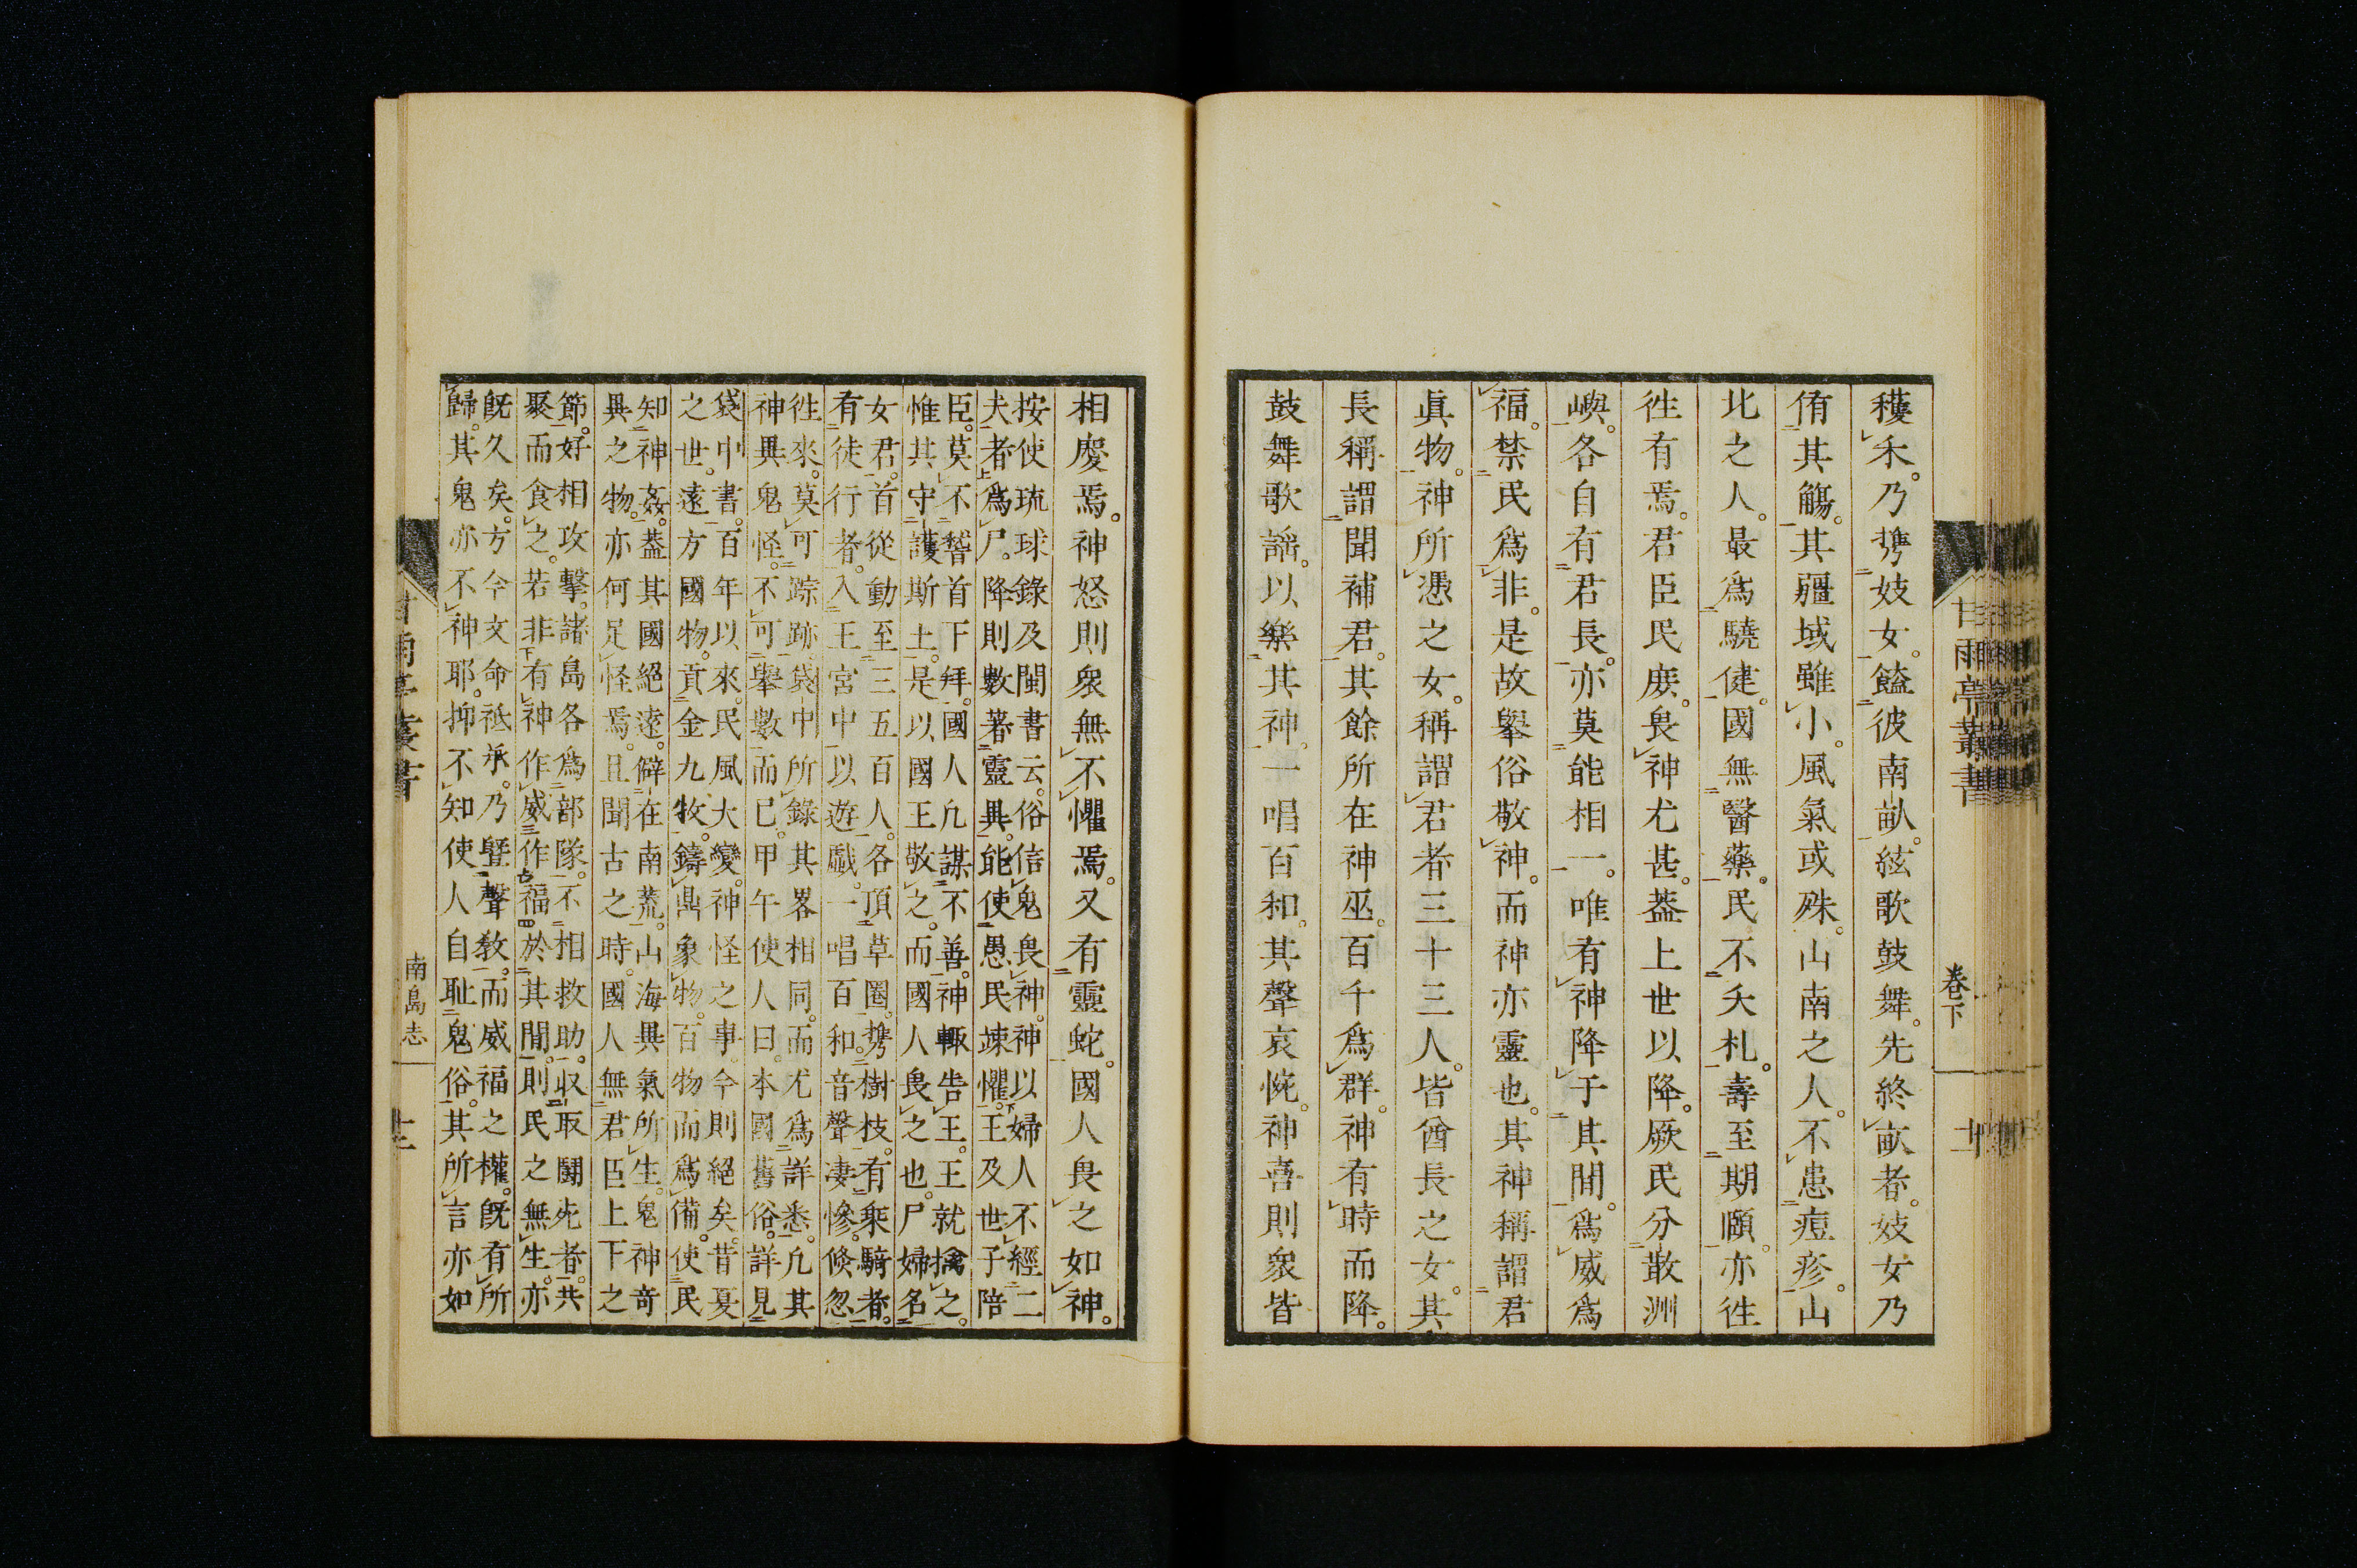 甘雨亭叢書
卷下
十一
穫禾。乃擕妓女。饁彼南畝。絃歌鼓舞。先終畝者。妓女乃
侑其觴。其疆域雖小。風氣或殊。山南之人。不患痘疹。山
北之人。最爲驍健。國無醫藥。民不夭札。壽至期頤。亦徃
徃有焉。君臣民庶。畏神尤甚。葢上世以降。厥民分散洲
嶼。各自有君長。亦莫能相一。唯有神降于其間。爲威爲
福。禁民爲非。是故舉俗敬神。而神亦靈也。其神稱謂君
眞物。神所憑之女。稱謂君者三十三人。皆酋長之女。其
長稱謂聞補君。其餘所在神巫。百千爲群。神有時而降。
鼓舞歌謠。以樂其神。一唱百和。其聲哀惋。神喜則衆皆
相慶焉。神怒則衆無不懼焉。又有靈蛇。國人畏之如神。
按使琉球錄及閩書云。俗信鬼畏神。神以婦人不經二
夫者爲尸。降則數著靈異。能使愚民竦懼。王及世子陪
臣。莫不䭫首下拜。國人凢謀不善。神輙告王。王就擒之。
惟其守護斯土。是以國王敬之。而國人畏之也。尸婦名
女君。首從動至三五百人。各頂草圈。擕樹枝。有乗騎者。
有徒行者。入王宮中以遊戲。一唱百和。音聲凄慘。倐忽
徃來。莫可踪跡。袋中所錄其畧相同。而尤爲詳悉。凢其
神異鬼怪。不可舉數而已。甲午使人曰。本國舊俗。詳見
袋中書。百年以來。民風大變。神怪之事。今則絕矣。昔夏
之世。遠方國物。貢金九牧。鑄鼎象物。百物而爲備。使民
知神姦。葢其國絕遠。僻在南荒。山海異氣所生。鬼神奇
異之物。亦何足怪焉。且聞古之時。國人無君臣上下之
節。好相攻擊。諸島各爲部隊。不相救助。収取鬪死者。共
聚而食之。若非有神作威作福於其間。則民之無生。亦
旣久矣。方今文命祗承。乃曁聲敎。而威福之權。旣有所
歸。其鬼亦不神耶。抑不知使人自耻鬼俗。其所言亦如
南島志